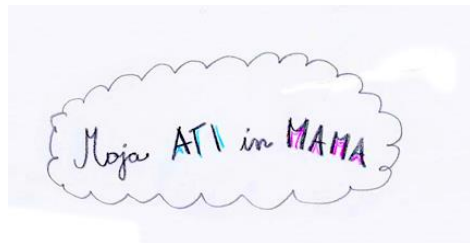 Moja ATI in MAMA